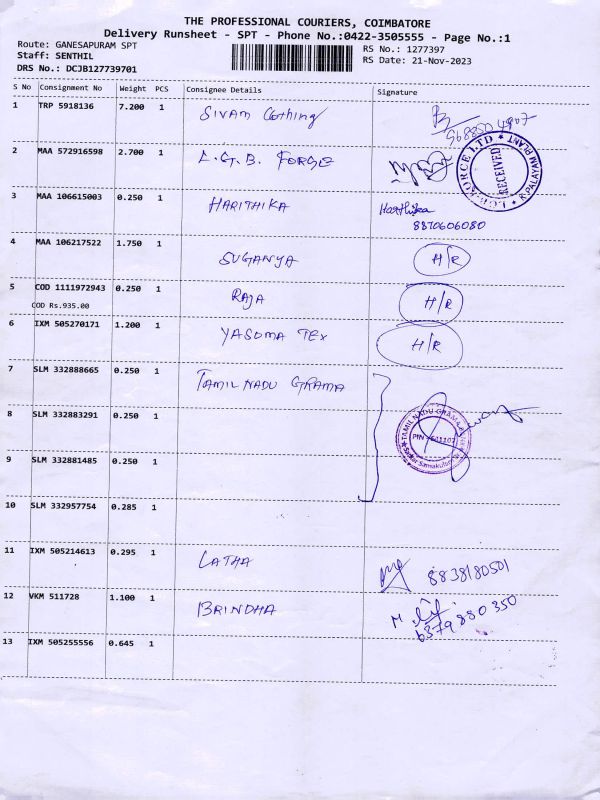 THE PROFESSIONAL COURIERS, COIMBATORE
Delivery Runsheet - SPT - Phone No.:0422-3505555 - Page No.:1
Route: GANESAPURAM SPT
RS No.: 1277397
Staff: SENTHIL
RS Date: 21-Nov-2023
DRS No.: DCJB127739701
S No Consignment No Weight PCS Consignee Details Signature
1 TRP 5918136 7.200 1 SIVAM Clothing
2 MAA 572916598 2.700 1 L.G.B. FORGE
RECEIVED
K.PALAYAM PLANT
3 MAA 106615003 0.250 1 HARITHIKA Harthika
8870606080
4 MAA 106217522 1.750 1 SUGANYA H/R
5 COD 1111972943 0.250 1 RAJA H/R
COD Rs.935.00
6 IXM 505270171 1.200 1 YASODA TEX H/R
7 SLM 332888665 0.250 1 TAMIL NADU GRAMA
8 SLM 332883291 0.250 1
TAMIL NADU GRAMA
9 SLM 332881485 0.250 1
10 SLM 332957754 0.285 1
11 IXM 505214613 0.295 1 LATHA 8838180501
12 VKM 511728 1.100 1 BRINDHA
6379880350
13 IXM 505255556 0.645 1